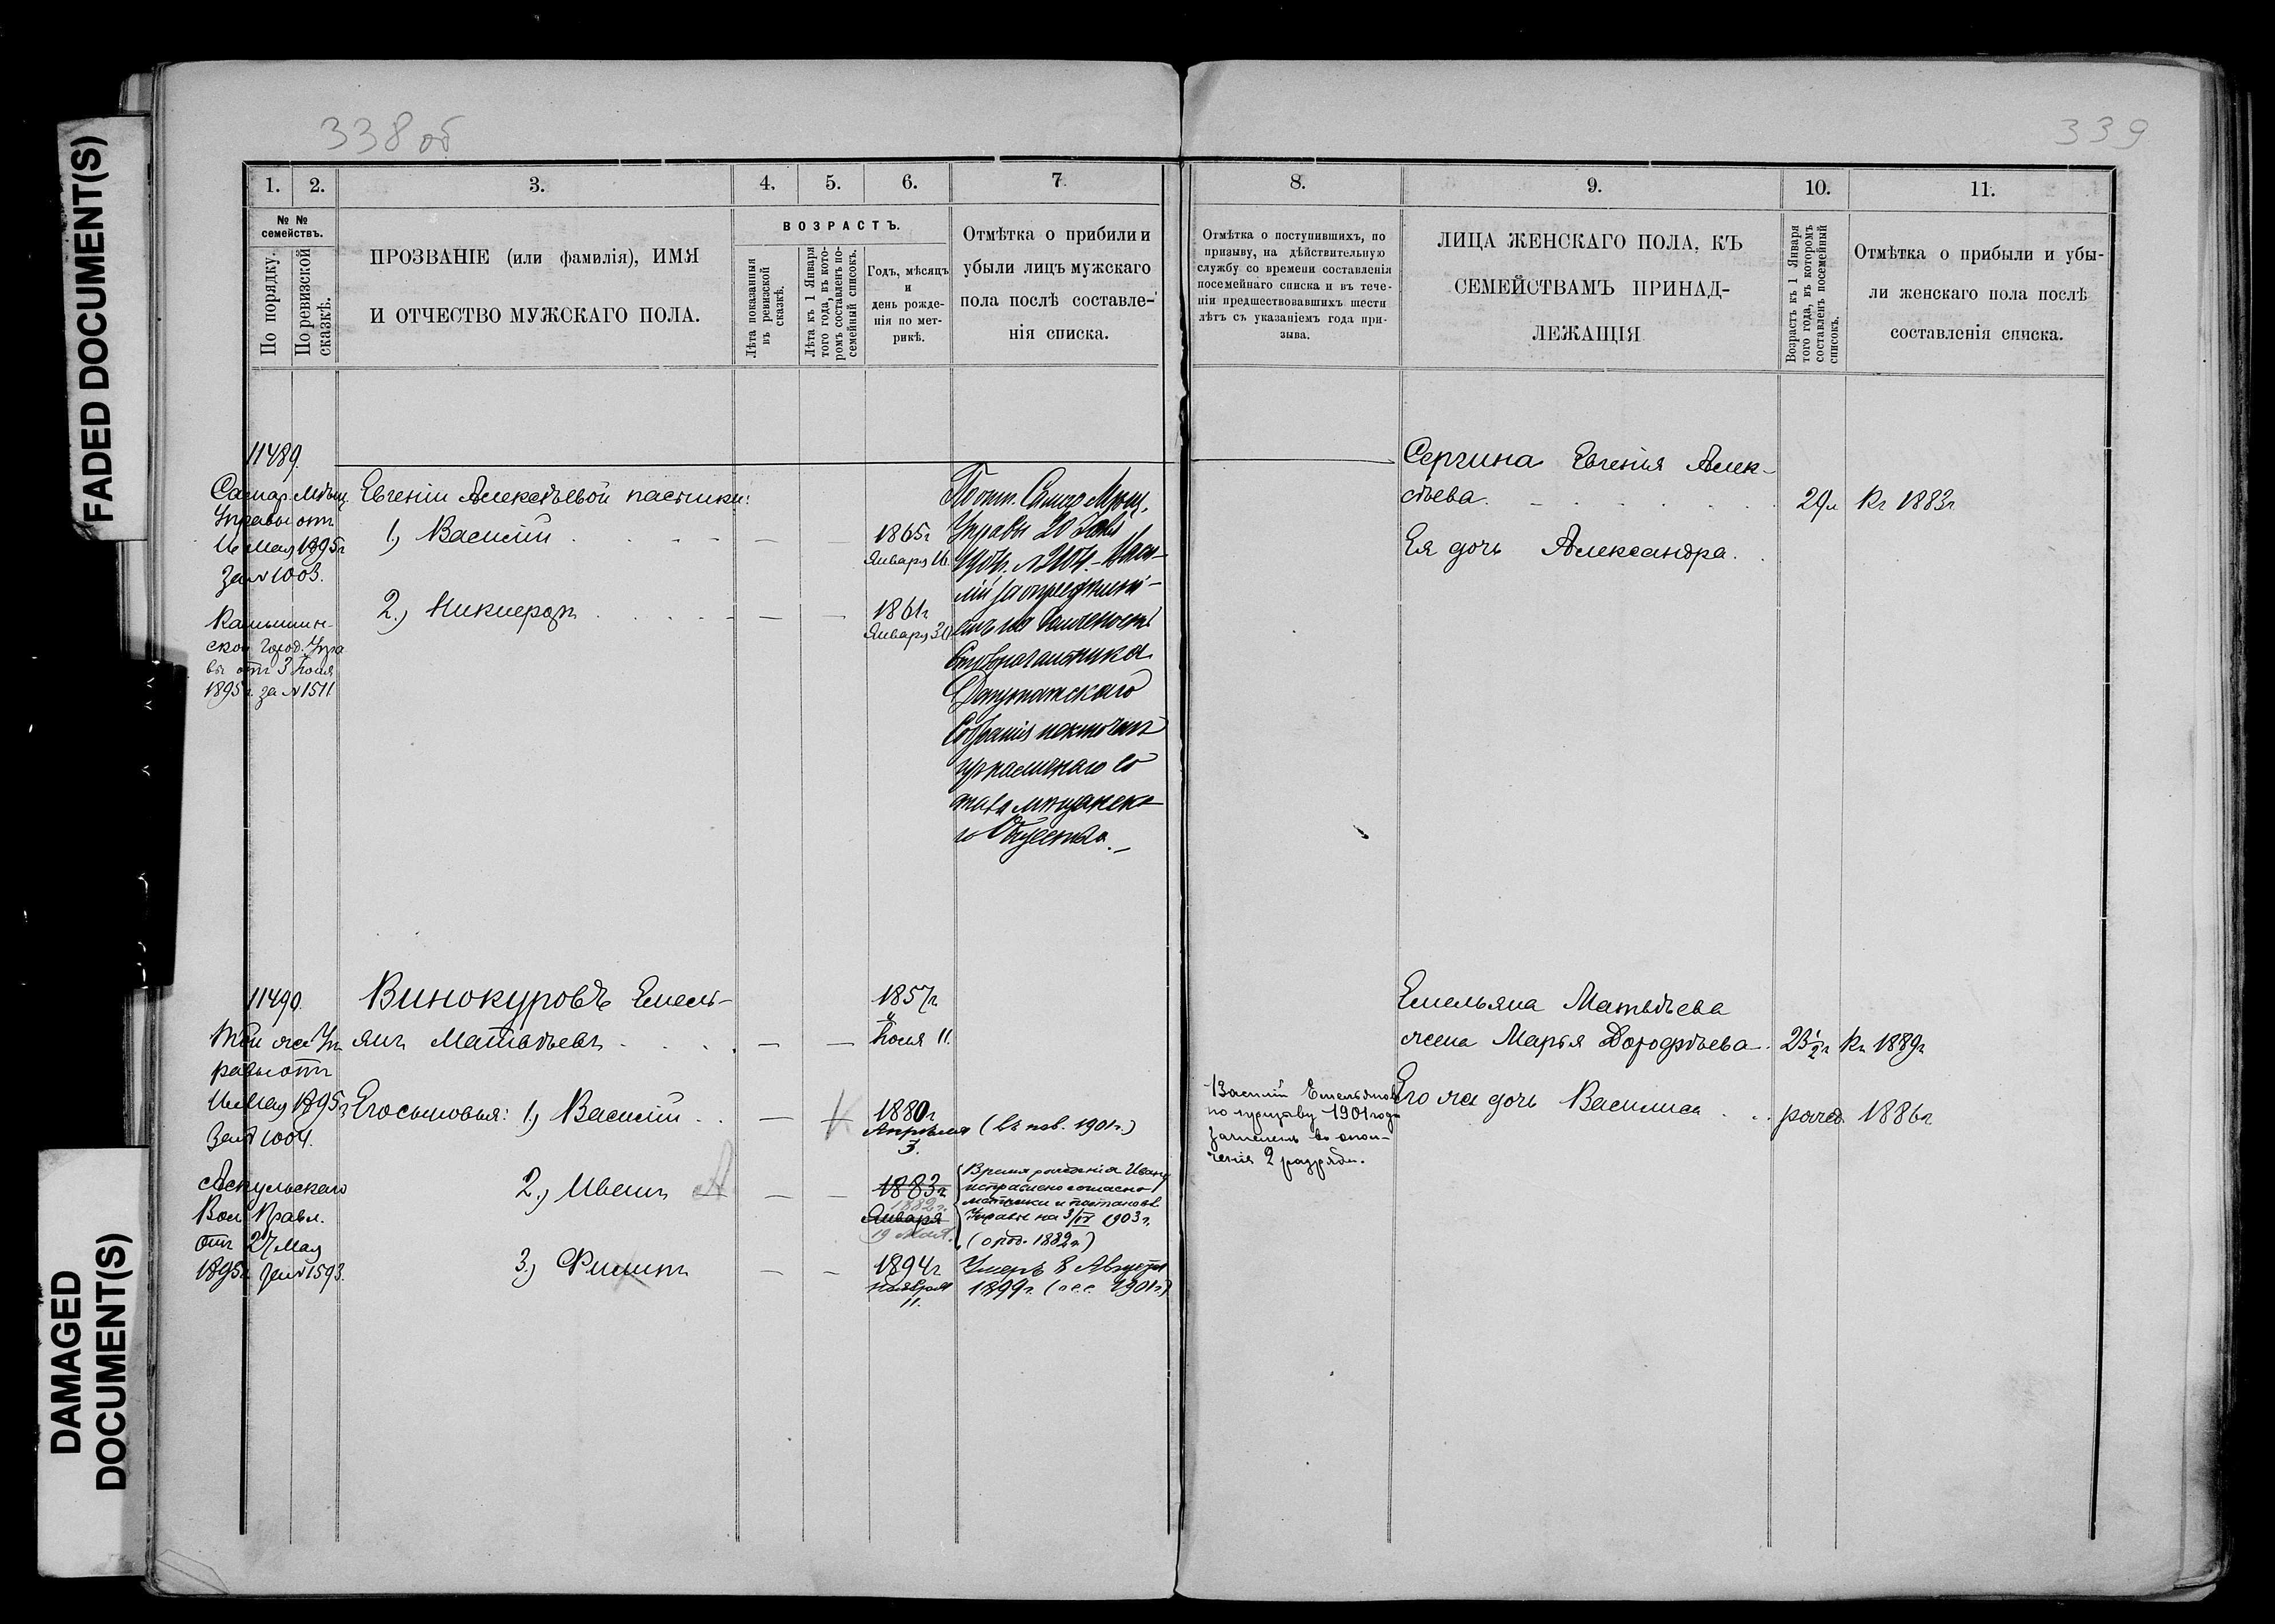 FADED DOCUMENT(S)
DAMAGED
DOCUMENT(S)
338 об
1.
2.
3.
4.
5.
6.
7.
№ №
семействъ.
По порядку.
По ревизской
сказкѣ.
ПРОЗВАНІЕ (или фамилія), ИМЯ
И ОТЧЕСТВО МУЖСКАГО ПОЛА.
ВОЗРАСТЪ.
Лѣта показанныя
въ ревизской
сказкѣ.
Лѣта къ 1 Января
того года, въ кото-
ромъ составленъ по-
семейный списокъ.
Годъ, мѣсяцъ
и
день рожде-
нія по мет-
рикѣ.
Отмѣтка о прибыли и
убыли лицъ мужскаго
пола послѣ составле-
нія списка.
11489.
Самар. Мѣщ.
Управы отъ
Мая 1895г
За № 1003.
Камышин-
ской Город. Упра
вы отъ 3 Іюля
1895 г. за № 1511
Евгеніи Алексѣевой пасынки:
1, Василій
1865г
Января 16.
2, Никифоръ
1861г
Января 30
Пост. Самар Мѣщ.
Управы 20
Васи-
лій за опредѣлені-
емъ на должность
Столоначальника
Депутатскаго
Собранія исключенъ
изъ
мѣщанска-
го Общества.
11490.
Той же Уп-
равы отъ
Мая 1895г
За № 1004.
Аскульскаго
Вол. Правл.
Отъ 27 Мая
1895г. За № 1593.
Винокуровъ Емель-
янъ Матвѣевъ
1857г
Іюля 11.
Его сыновья: 1, Василій
1880г
Апрѣля (въ пов. 1901г.)
3.
2, Иванъ
1883г
1882г.
Января
19
Время рожденія Ивана
исправлено согласно
метрики и постановл.
Управы на 3/IV 1903г.
( о род. 1882г )
3, Филипъ
1894г
ноября
11.
Умеръ 8 Августа
1899г. ( 1901г)
339
8.
9.
10.
11.
Отмѣтка о поступившихъ, по
призыву, на дѣйствительную
службу со времени составленія
посемейнаго списка и въ тече-
ніи предшествовавшихъ шести
лѣтъ съ указаніемъ года при-
зыва.
ЛИЦА ЖЕНСКАГО ПОЛА, КЪ
СЕМЕЙСТВАМЪ ПРИНАД-
ЛЕЖАЩІЯ
Возрастъ къ 1 Января
того года, въ которомъ
составленъ посемейный
списокъ.
Отмѣтка о прибыли и убы-
ли женскаго пола послѣ
составленія списка.
Сергина Евгенія Алек-
сѣева
29л
Къ 1883г
Ея дочь Александра
Емельяна Матвѣева
жена Марья Дорофѣева
23 1/2 г
Къ 1889г
Его же дочь Василиса
рожд. 1886г
Василій Емельяновъ
по призыву 1901 года
Зачисленъ въ опол-
ченіе 2 разряда.